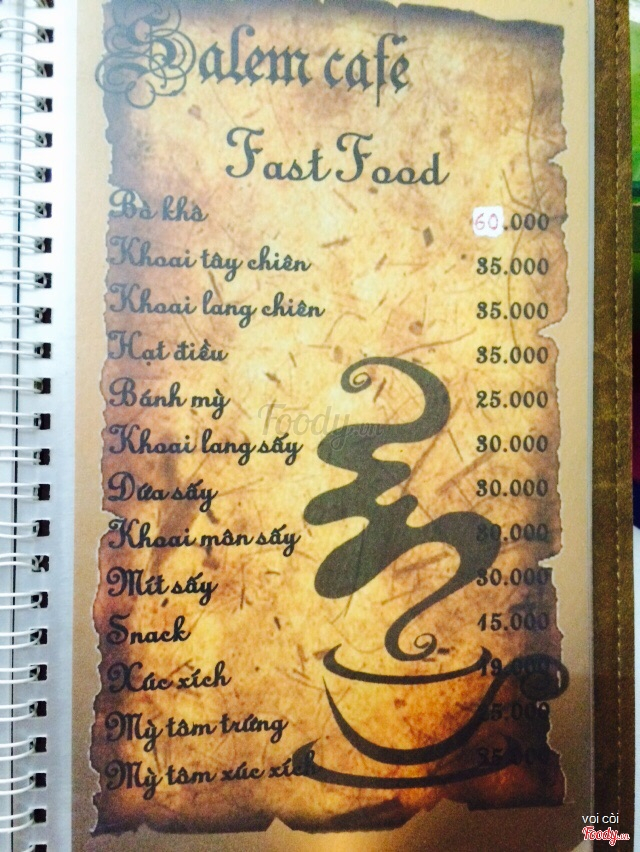 Salem café
Fast Food
Bò khô 60.000
Khoai tây chiên 35.000
Khoai lang chiên 35.000
Hạt điều 35.000
Bánh mỳ 25.000
Khoai lang sấy 30.000
Dứa sấy 30.000
Khoai môn sấy 30.000
Mít sấy 30.000
Snack 15.000
Xúc xích
Mỳ tôm trứng
Mỳ tôm xúc xích 35.000
Foody.vn
voi còi
Foody.vn